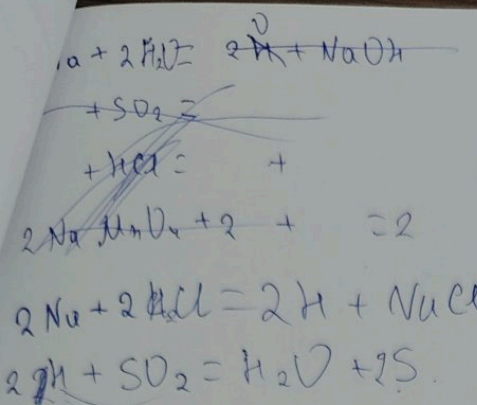 a + 2H₂O = 2H + NaOH
+ SO₂ =
+ HCl = +
2Na MnO₄ + 2 + = 2
2Na + 2HCl = 2H + NaCl
2H + SO₂ = H₂O + 2S.